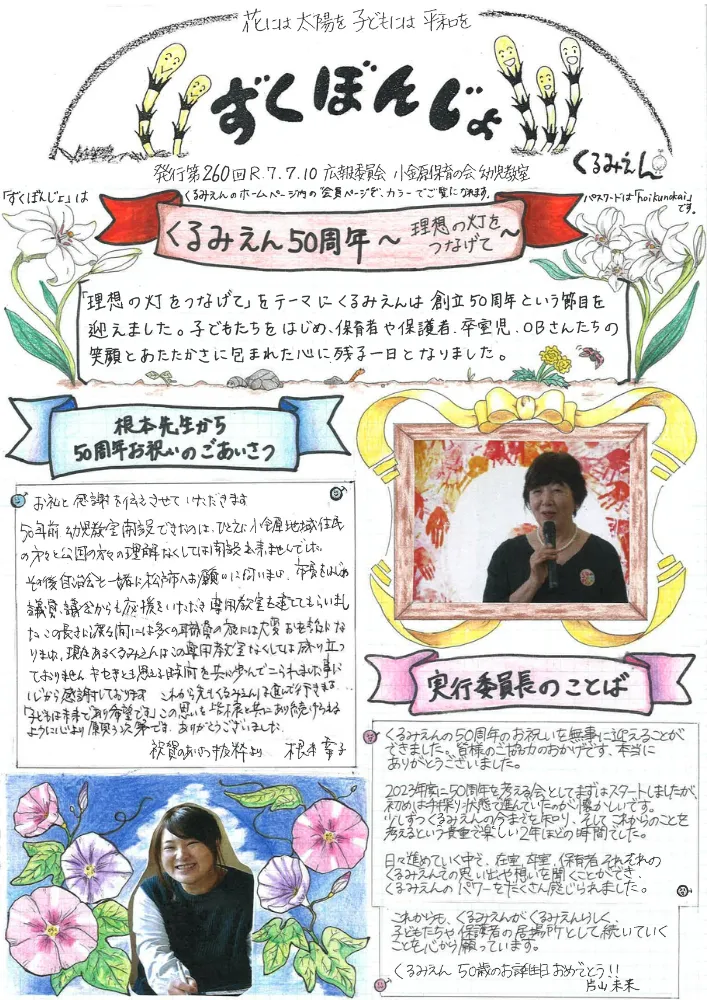 花には太陽を子どもには平和を
ずくぼんじょ
くるみえん
発行第260回R.7.7.10 広報委員会 小金原保育の会幼児教室
「ずくぼんじょ」は
くるみえんのホームページ内の会員ページで、カラーでご覧になれます。
パスワードは「hoikunokai」
です。
くるみえん50周年～理想の灯を
つなげて～
「理想の灯をつなげて」をテーマにくるみえんは創立50周年という節目を
迎えました。子どもたちをはじめ、保育者や保護者、卒室児、OBさんたちの
笑顔とあたたかさに包まれた心に残る一日となりました。
根本先生から
50周年お祝いのごあいさつ
お礼と感謝を伝えさせていただきます
50年前幼児教室開設できたのは、ひとえに小金原地域住民
の方々と公団の方々の理解なくしては開設出来ませんでした。
その後自治会と一緒に松戸市へお願いに伺いまわり、市長をはじめ
議員、議会からも応援をいただき専用教室を建ててもらいまし
た。この長き
現在あるくるみえんはこの専用教室なくしては成り立っ
ておりません
心から感謝しております
ように心より願う次第です。ありがとうございました。
祝賀のあいさつ抜粋より 根本幸子
実行委員長のことば
くるみえんの50周年のお祝いを無事に迎えることが
できました。皆様のご協力のおかげです、本当に
ありがとうございました。
2023年度に50周年を考える会としてまずはスタートしましたが、
初めは手探り状態で進んでいたのが懐かしいです。
少しずつくるみえんの今までを知り、そしてこれからのことを
考えるという貴重で楽しい2年ほどの時間でした。
日々進めていく中で、在室、卒室、保育者それぞれの
くるみえんでの思い出や想いを聞くことができ、
くるみえんのパワーをたくさん感じられました。
これからも、くるみえんがくるみえんらしく、
子どもたちや保護者の居場所として続いていく
ことを心から願っています。
くるみえん 50歳のお誕生日おめでとう!!
片山未来